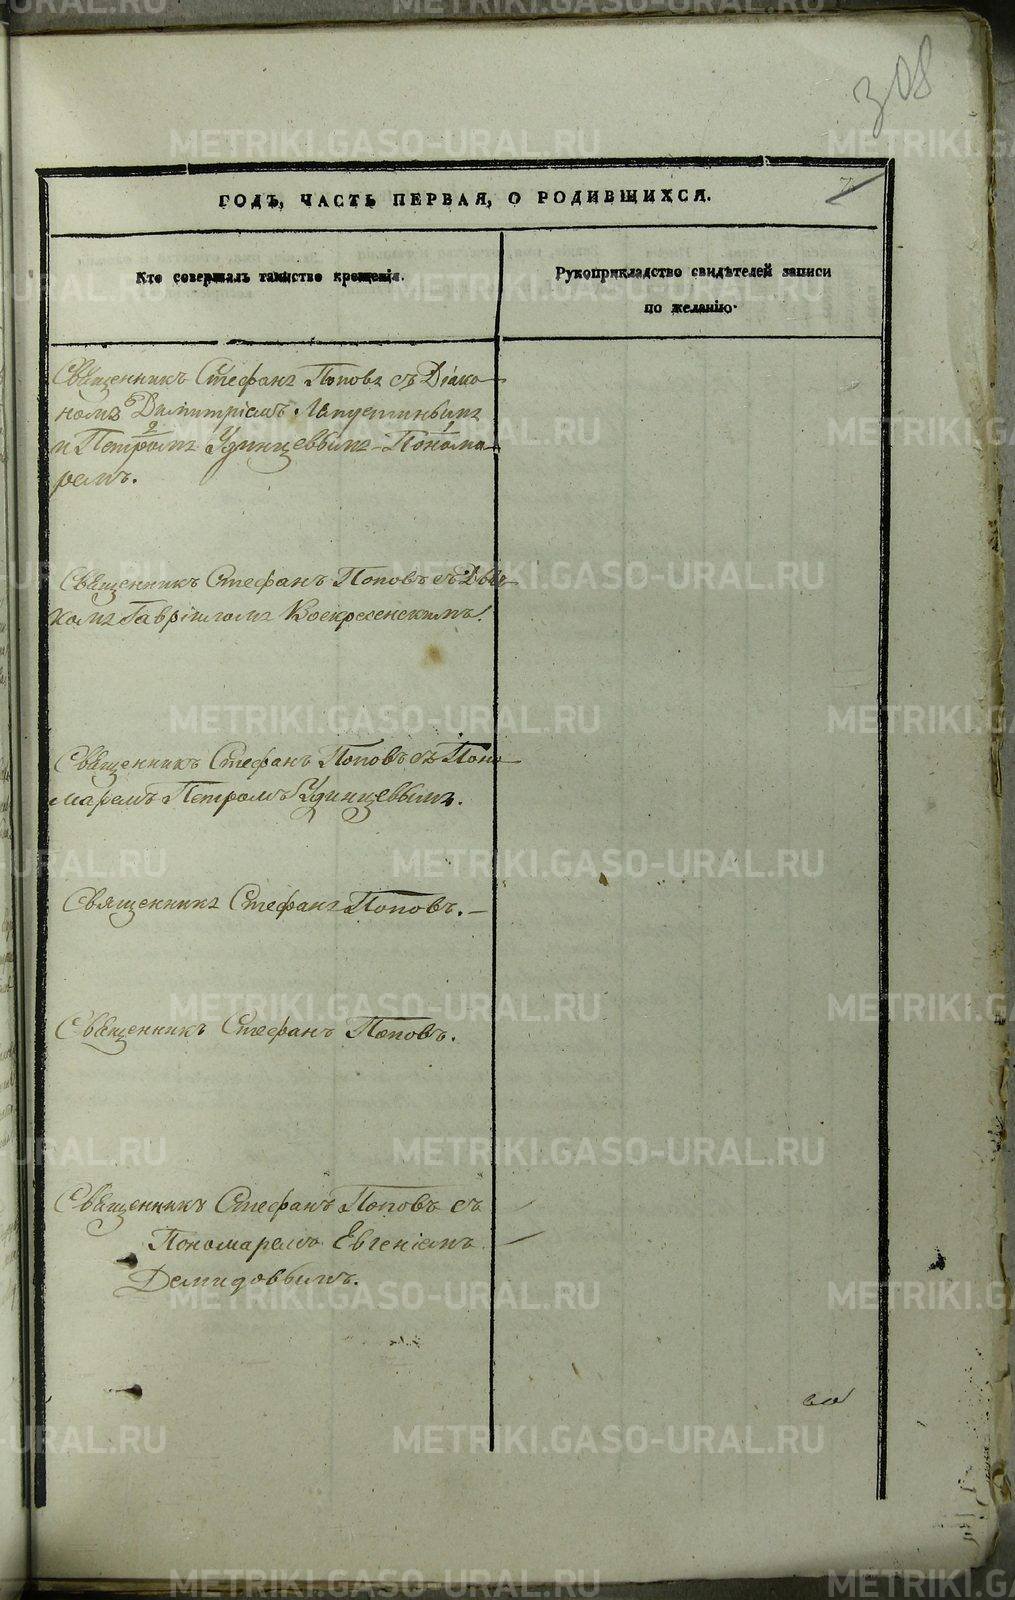 308
ГОДЪ, ЧАСТЬ ПЕРВАЯ, О РОДИВШИХСЯ.
Кто совершалъ таинство крещенія.
Рукоприкладство свидѣтелей записи
по желанію.
Священникъ Стефанъ Поповъ съ Діако-
номъ Димитріемъ Лапустинымъ
2 1
и Петромъ Удинцевымъ - Понома-
ремъ.
Священникъ Стефанъ Поповъ съ Дья-
комъ Гавріиломъ Воскресенскимъ.
Священникъ Стефанъ Поповъ съ Поно-
маремъ Петромъ Удинцевымъ.
Священникъ Стефанъ Поповъ. —
Священникъ Стефанъ Поповъ.
Священникъ Стефанъ Поповъ съ
Пономаремъ Евгеніемъ
Демидовымъ.
METRIKI.GASO-URAL.RU